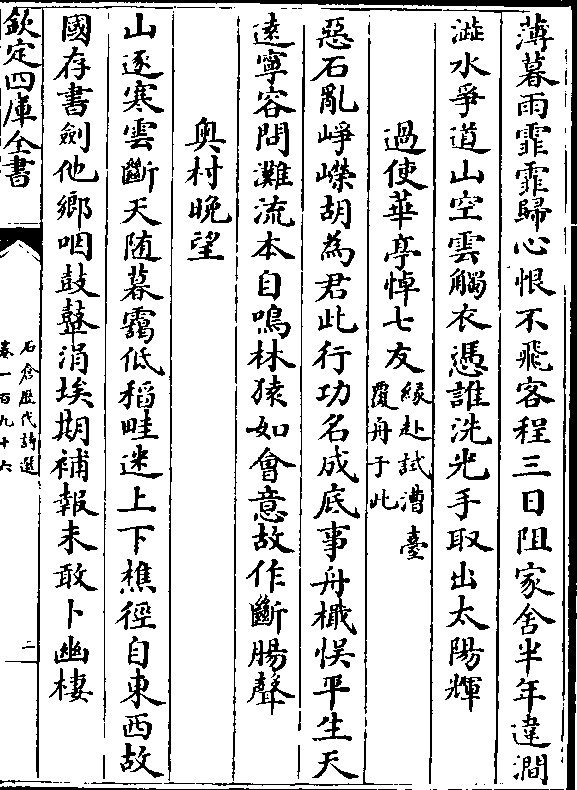 薄暮雨霏霏歸心恨不飛客程三日阻家舍半年違澗
澁水爭道山空雲觸衣憑誰洗光手取出太陽輝
過使華亭悼七友緣赴試漕臺
覆舟于此
惡石亂崢嶸胡為君此行功名成底事舟檝悞平生天
遠寧容問灘流本自鳴林猿如會意故作斷腸聲
奥村晚望
山逐寒雲斷天随暮靄低稻畦迷上下樵徑自東西故
國存書劍他鄉咽鼓鼙涓埃期補報未敢卜幽棲
欽定四庫全書
石倉歷代詩選
卷一百九十六
二